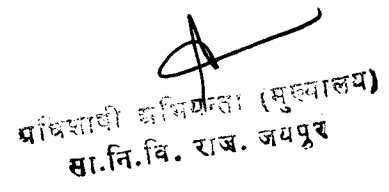 अधिशाषी अभियन्ता (मुख्यालय)
सा.नि.वि. राज. जयपुर